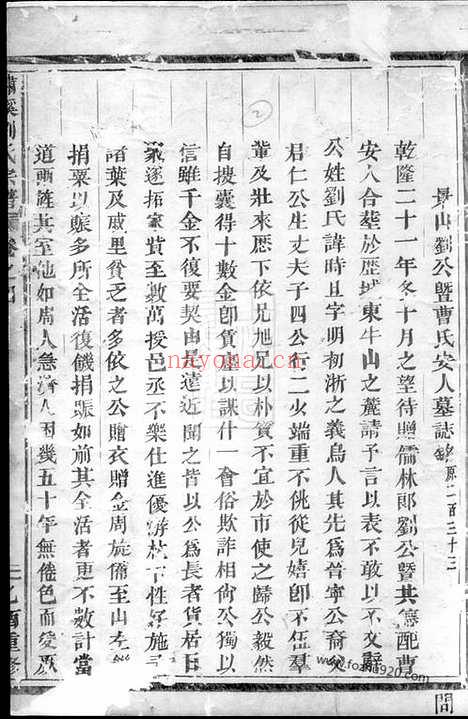 景山劉公暨曹氏安人墓誌銘 原二百三十三
乾隆二十一年冬十月之望待贈儒林郎劉公暨其德配曹
安人合塟於歷城東牛山之麓請予言以表不敢以不文辭
公姓劉氏諱時且字明初浙之義烏人其先為晉寧公裔父
君仁公生丈夫子四公行二火端重不佻從兄嬉即不伍羣
輩及壯來歷下依兄旭兄以朴質不宜於市使之歸公毅然
自搜囊得十數金卽賃廛以謀什一會俗欺詐相尚公獨以
信雖千金不復要契由是遠近聞之皆以公為長者貨居日
裝逐拓家貲至數萬授邑丞不樂仕進優游林下性好施
諸葉及戚里貧乏者多依之公贈衣贈金周旋備至山左
捐粟以賑多所全活復饑捐賑如前其全活者更不數計當
道
其室他如周人急濟人困幾五十年無倦色而愛
繡溪劉氏宗譜 卷之四
乙酉重修
②
nayona.cn
www.jiapu920.com
問